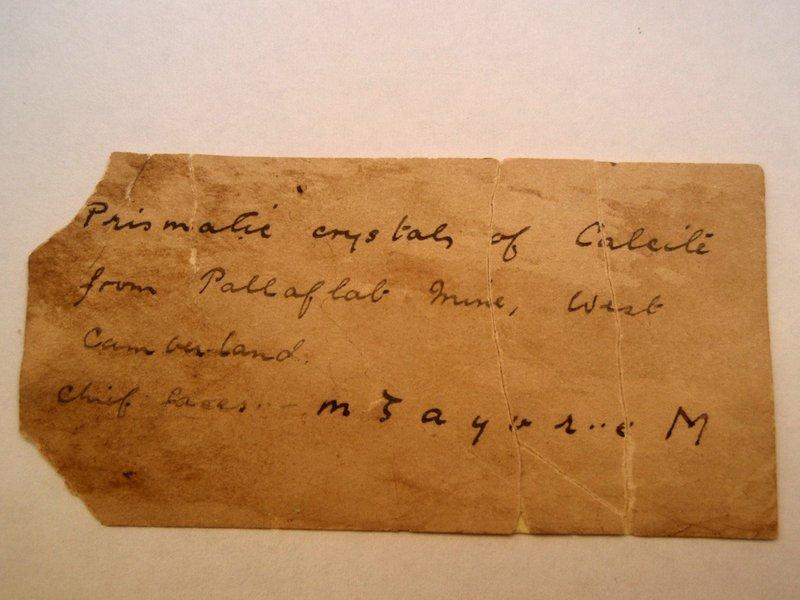 Prismatic crystals of Calcite
from Pallaflat Mine, West
Cumberland.
Chief faces:- m ζ a y v r e M